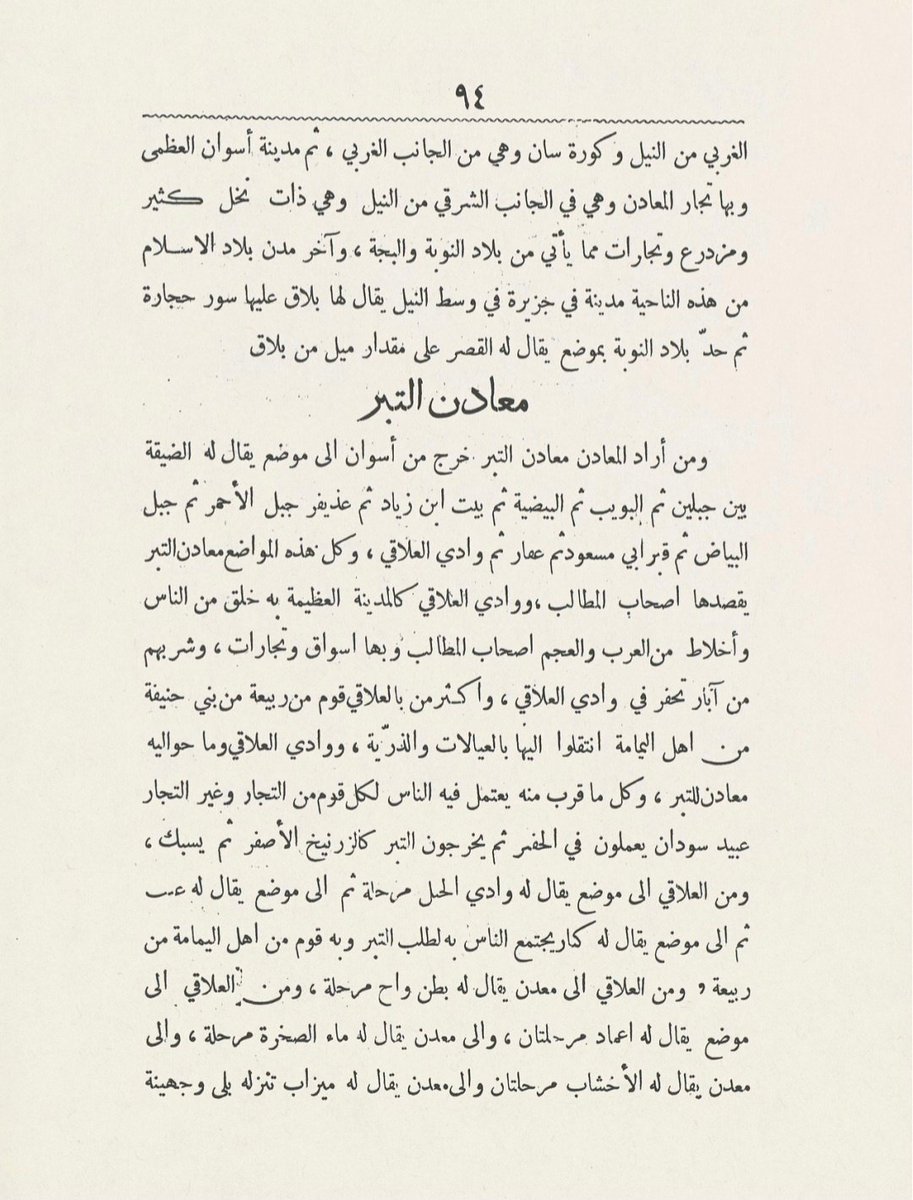 ٩٤
الغربي من النيل وكورة سان وهي من الجانب الغربي ، ثم مدينة أسوان العظمى
وبها تجار المعادن وهي في الجانب الشرقي من النيل وهي ذات نخل كثير
ومزدرع وتجارات مما يأتي من بلاد النوبة والبجة ، وآخر مدن بلاد الاسلام
من هذه الناحية مدينة في جزيرة في وسط النيل يقال لها بلاق عليها سور حجارة
ثم حدّ بلاد النوبة بموضع يقال له القصر على مقدار ميل من بلاق
معادن التبر
ومن أراد المعادن معادن التبر خرج من أسوان الى موضع يقال له الضيقة
بين جبلين ثم البويب ثم البيضية ثم بيت ابن زياد ثم عذيفر جبل الأحمر ثم جبل
البياض ثم قبر ابي مسعود ثم عفار ثم وادي العلاقي ، وكل هذه المواضع معادن التبر
يقصدها اصحاب المطالب ، ووادي العلاقي كالمدينة العظيمة به خلق من الناس
وأخلاط من العرب والعجم اصحاب المطالب وبها اسواق وتجارات ، وشربهم
من آبار تحفر في وادي العلاقي ، واكثر من بالعلاقي قوم من ربيعة من بني حنيفة
من اهل اليمامة انتقلوا اليها بالعيالات والذرّية ، ووادي العلاقي وما حواليه
معادن للتبر ، وكل ما قرب منه يعتمل فيه الناس لكل قوم من التجار وغير التجار
عبيد سودان يعملون في الحفر ثم يخرجون التبر كالزرنيخ الأصفر ثم يسبك ،
ومن العلاقي الى موضع يقال له وادي الحبل مرحلة ثم الى موضع يقال له
ثم الى موضع يقال له كبار يجتمع الناس به لطلب التبر وبه قوم من اهل اليمامة من
ربيعة , ومن العلاقي الى معدن يقال له بطن واح مرحلة ، ومن العلاقي الى
موضع يقال له اعماد مرحلتان ، والى معدن يقال له ماء الصخرة مرحلة ، والى
معدن يقال له الأخشاب مرحلتان والى معدن يقال له ميزاب تنزله بلى وجهينة